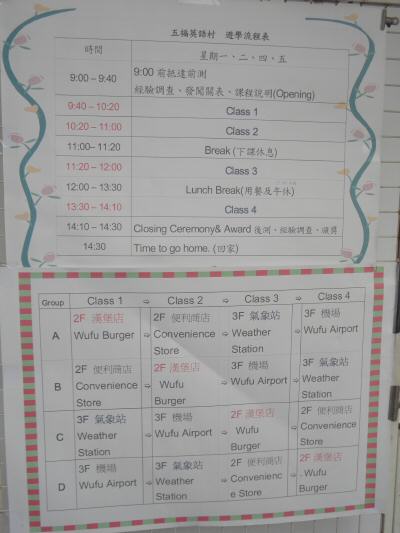 五福英語村 遊學流程表
時間 星期一、二、四、五
9:00 – 9:40 9:00 前抵達前測
經驗調查、發闖關表、課程說明(Opening)
9:40 – 10:20 Class 1
10:20 – 11:00 Class 2
11:00– 11:20 Break (下課休息)
11:20 – 12:00 Class 3
12:00 – 13:30 Lunch Break(用餐及午休)
13:30 – 14:10 Class 4
14:10 – 14:30 Closing Ceremony& Award 後測、經驗調查、頒獎
14:30 Time to go home. (回家)
Group Class 1 ⇨ Class 2 ⇨ Class 3 ⇨ Class 4
A
2F 漢堡店
Wufu Burger
⇨
2F 便利商店
Convenience
Store
⇨
3F 氣象站
Weather
Station
⇨
3F 機場
Wufu Airport
B
2F 便利商店
Convenience
Store
⇨
2F 漢堡店
Wufu
Burger
⇨
3F 機場
Wufu Airport
⇨
3F 氣象站
Weather
Station
C
3F 氣象站
Weather
Station
⇨
3F 機場
Wufu Airport
⇨
2F 漢堡店
Wufu
Burger
⇨
2F 便利商店
Convenience
Store
D
3F 機場
Wufu Airport
⇨
3F 氣象站
Weather
Station
⇨
2F 便利商店
Convenienc
e Store
⇨
2F 漢堡店
Wufu
Burger